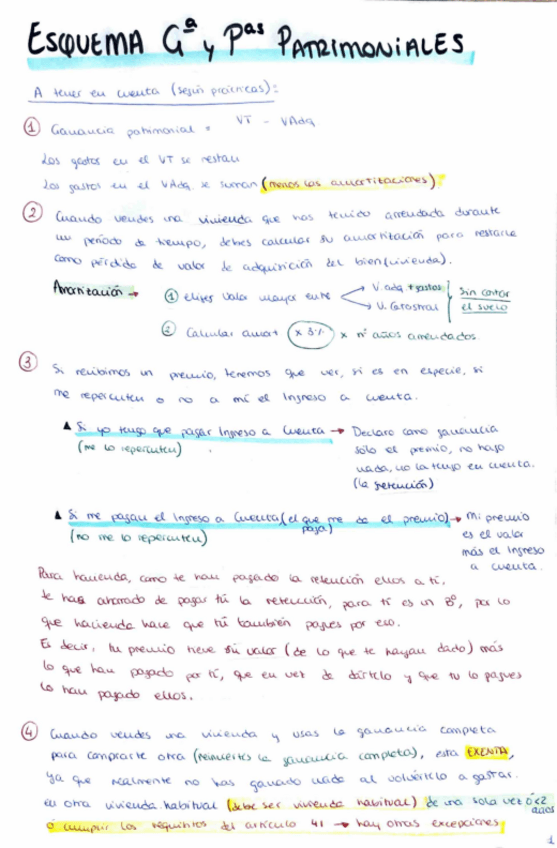 ESQUEMA Gª y Pas PATRIMONIALES
A tener en cuenta (según prácticas):
① Ganancia patrimonial = VT - VAdq
Los gastos en el VT se restan
Los gastos en el VAdq se suman (menos las amortizaciones)
② Cuando vendes una vivienda que has tenido arrendada durante
un período de tiempo, debes calcular su amortización para restarle
como pérdida de valor de adquisición del bien (vivienda).
Amortización → ① elijes valor mayor entre V. adq + gastos
V. Catastral
Sin contar
el suelo
② Calcular amort x 3% x nº años arrendados
③ Si recibimos un premio, tenemos que ver, si es en especie, si
me repercuten o no a mí el Ingreso a cuenta.
▲ Si yo tengo que pagar Ingreso a cuenta → Declaro como ganancia
(me lo repercuten)
solo el premio, no hago
nada, no la tengo en cuenta.
(la retención)
▲ Si me pagan el Ingreso a Cuenta (el que me da el premio) → Mi premio
paga)
(no me lo repercuten)
es el valor
más el Ingreso
a cuenta.
Para hacienda, como te han pagado la retención ellos a ti,
te has ahorrado de pagar tú la retención, para ti es un Bº, por lo
que hacienda hace que tú también pagues por eso.
Es decir, tu premio tiene su valor (de lo que te hayan dado) más
lo que han pagado por ti, que en vez de dártelo y que tu lo pagues
lo han pagado ellos.
④ Cuando vendes una vivienda y usas la ganancia completa
para comprarte otra (reinviertes la ganancia completa), esta EXENTA,
ya que realmente no has ganado nada al volvértelo a gastar.
en otra vivienda habitual (debe ser vivienda habitual) de una sola vez ó <2
años
ó cumplir los requisitos del artículo 41 → hay otras excepciones
1